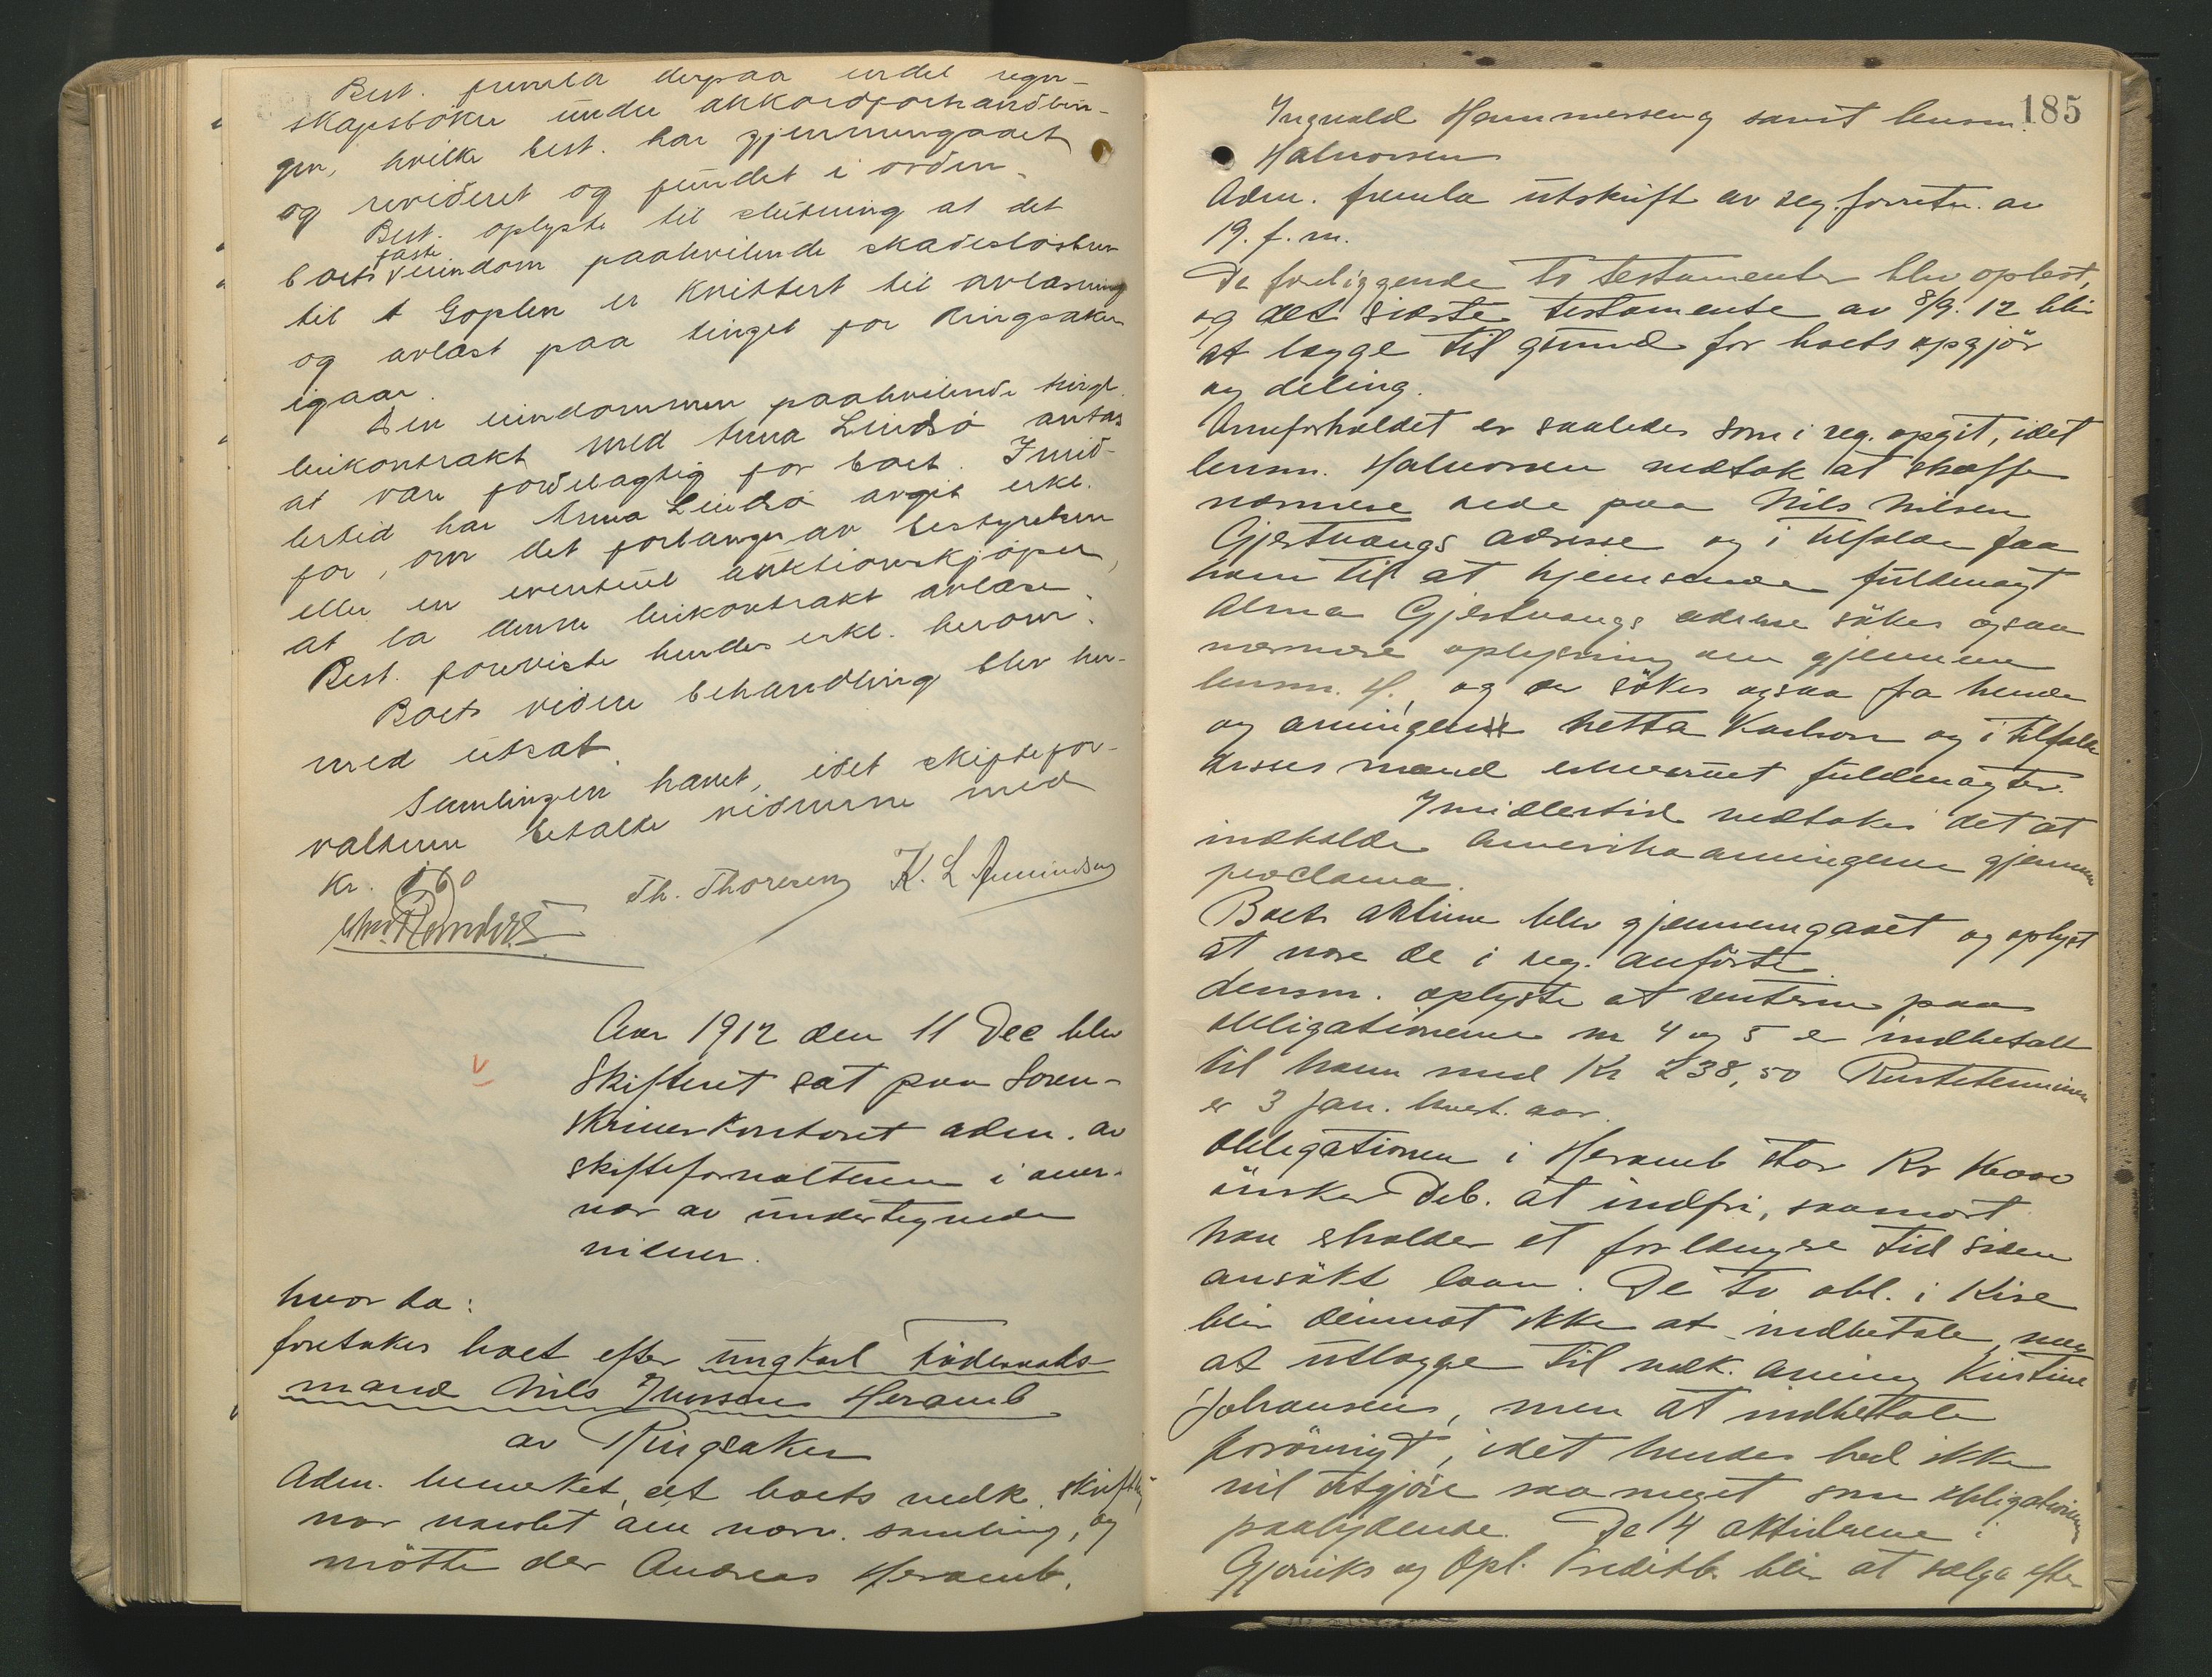 Best. fremla derpaa endel regn-
skapsböker under akkordforhandlin-
gen, hvilke best. har gjennemgaaet
og revideret og fundet i orden.
Best. oplyste til slutning at det
boets faste eiendom paahvilende skadeslösbrev
til A Goplen er kvittert til avlæsning
og avlæst paa tinget for Ringsaker
igaar.
Den eiendommen paahvilende tingl.
leiekontrakt med Anna Lindsö antas
at være fordelagtig for boet. Imid-
lertid har Anna Lindsö avgit erkl.
for, om det forlanges av bestyrelsen
eller en eventuel auktionskjöper,
at la denne leiekontrakt avlæse.
Best. foreviste hendes erkl. herom.
Boets videre behandling blev her-
med utsat.
Samlingen hævet, idet skiftefor-
valteren betalte vidnerne med
Kr. 1,60
Th. Thoresen K. L. Amundsen
Aar 1912 den 11 Dec blev
Skifteret sat paa Soren-
skriverkontoret adm. av
skifteforvalteren i over-
vær av undertegnede
vidner.
hvor da:
foretokes boet efter ungkarl föderaads-
mand Nils Iversen Heramb
av Ringsaker
Adm. bemerket, at boets vedk. skifte
var varslet om nærv. samling, og
mötte der Andreas Heramb,
185
Ingvald Hammerseng samt lensm.
Halvorsen
Adm. fremla utskrift av reg.forretn. av
19. f.m.
De foreliggende to testamenter blev oplæst,
og det sidste testamente av 8/9.12 blir
at lægge til grund for boets opgjör
og deling.
Arveforholdet er saaledes som i reg. opgit, idet
lensm. Halvorsen vedtok at skaffe
nærmere rede paa Nils Nilsen
Gjestvangs adresse og i tilfælde faa
ham til at hjemsende fuldmagt
Alma Gjestvangs adresse sökes ogsaa
nærmere oplysning om gjennem
lensm. H., og der sökes ogsaa fra hende
og arvingen Netta Karlson og i tilfælde
disses mænd erhvervet fuldmagter.
Imidlertid vedtokes det at
indkalde Amerikaarvingerne gjennem
proclama.
Boets aktiva blev gjennemgaaet og oplyst
at være de i reg. anförte.
Lensm. oplyste at renterne paa
obligationerne nr 4 og 5 er indbetalt
til ham med Kr 238,50 Renteterminen
er 3 jan. hvert aar.
Obligationen i Heramb stor Kr 16000
önsker Deb. at indfri, saasnart
han erholder et for længere tid siden
ansökt laan. De to obl. i Kise
blir derimot ikke at indbetale, men
at utlægge til vedk. arving Kirstine
Johansen, men at indbetale
forövrigt, idet hendes lod ikke
vil utgjöre saa meget som obligationens
paalydende. De 4 aktierne i
Gjöviks og Opl. Kreditb. blir at sælge efter